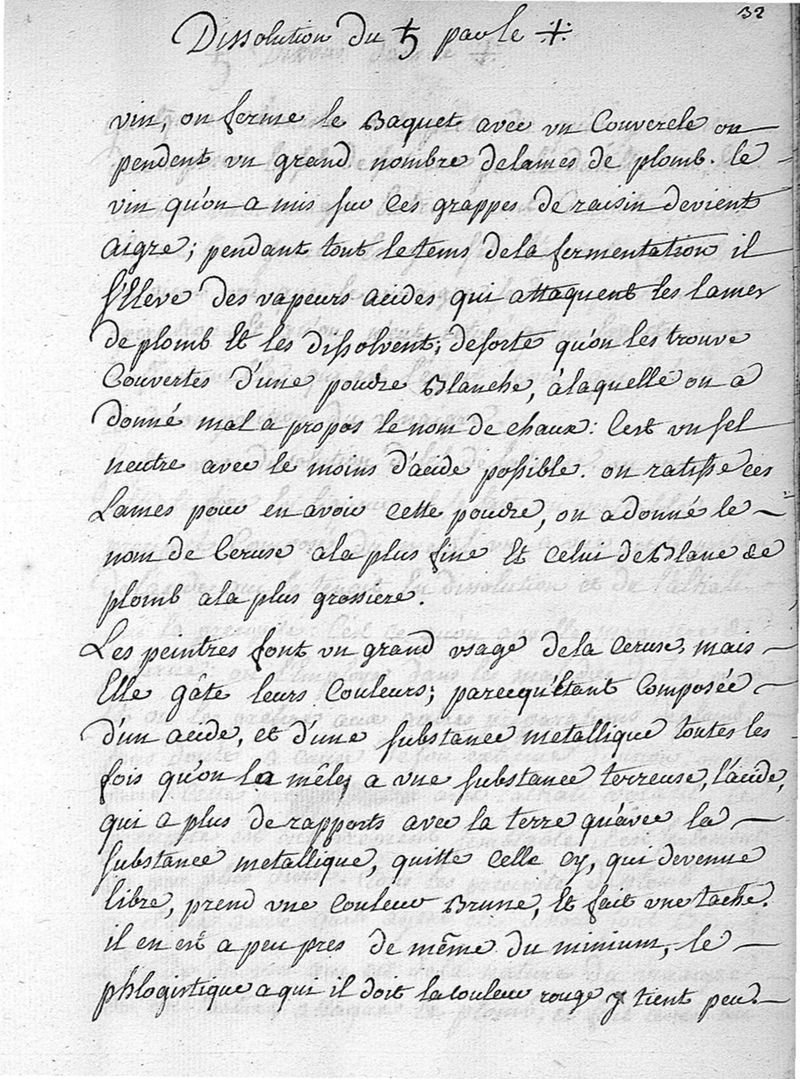 32
Dissolution du ♄ par le 🜊
vin, on ferme le Baquet avec un Couvercle ou
pendent un grand nombre de lames de plomb. le
vin qu'on a mis sur ces grappes de raisin devient
aigre; pendant tout le tems de la fermentation il
s'Eleve des vapeurs acides qui attaquent les lames
de plomb Et les dissolvent; de sorte qu'on les trouve
Couvertes d'une poudre Blanche, à laquelle on a
donné mal a propos le nom de chaux: C'est un sel
neutre avec le moins d'acide possible. on ratisse ces
Lames pour en avoir cette poudre, on a donné le
nom de Ceruse a la plus fine Et celui de Blanc de
plomb a la plus grossiere.
Les peintres font un grand usage de la Ceruse, mais
Elle gâte leurs Couleurs; parcequ'Etant Composée
d'un acide, et d'une substance metallique toutes les
fois qu'on la mêle a une substance terreuse, l'acide,
qui a plus de rapports avec la terre qu'avec la
substance metallique, quitte celle cy, qui devenue
libre, prend une Couleur Brune, Et fait une tache.
il en est a peu pres de même du minium, le
phlogistique a qui il doit la couleur rouge y tient peu